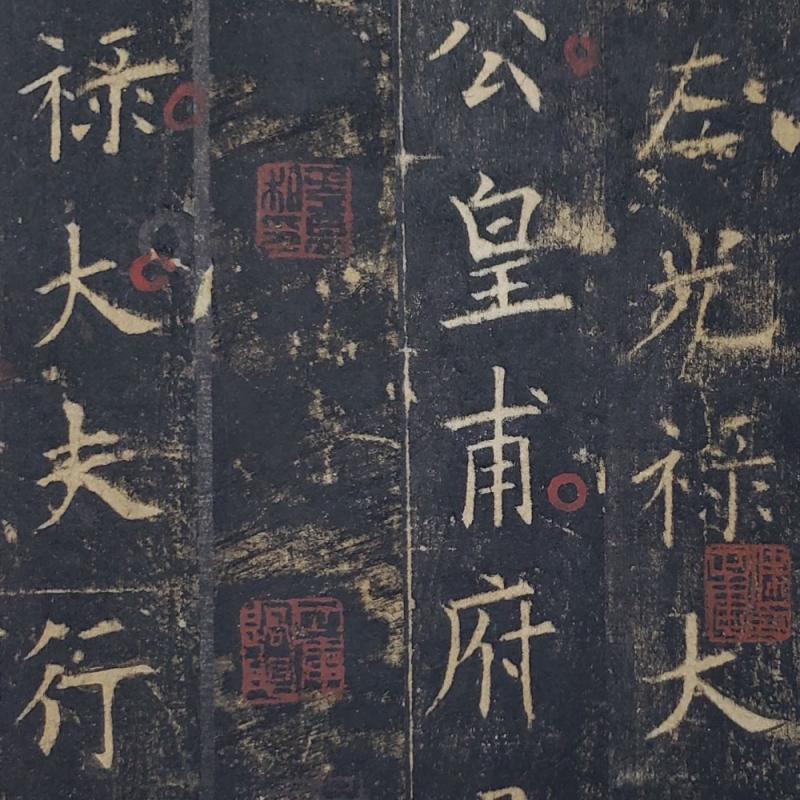 左光祿大
公皇甫府
祿大夫行